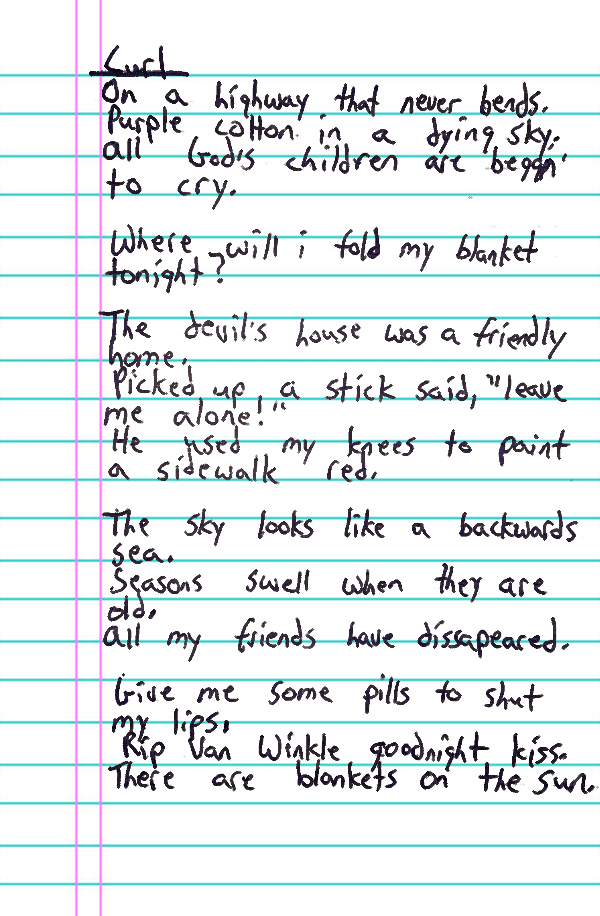 Curl
On a highway that never bends.
Purple cotton in a dying sky.
all God's children are beggn'
to cry.
Where will i fold my blanket
tonight?
The devil's house was a friendly
home.
Picked up a stick said, "leave
me alone!"
He used my knees to paint
a sidewalk red.
The sky looks like a backwards
sea.
Seasons swell when they are
old.
all my friends have dissapeared.
Give me some pills to shut
my lips.
Rip Van Winkle goodnight kiss.
There are blankets on the sun.